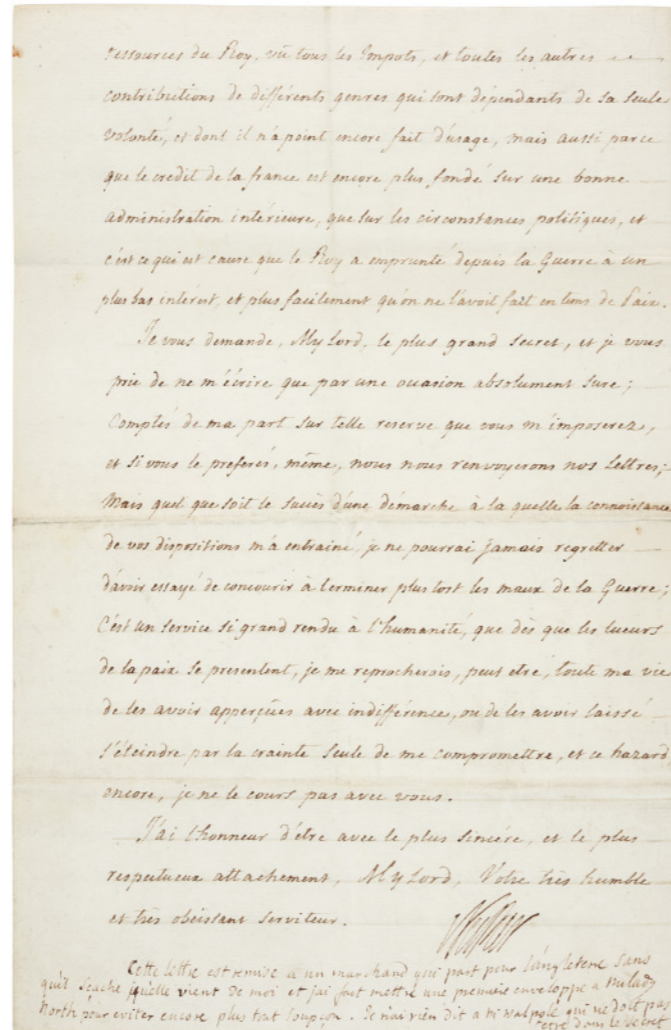 ressources du Roy, vû tous les Impots, et toutes les autres
contributions de différents genres qui sont dépendants de sa seule
volonté, et dont il n'a point encore fait d'usage, mais aussi parce
que le credit de la france est encore plus fondé sur une bonne
administration intérieure, que sur les circonstances politiques, et
c'est ce qui est cause que le Roy a emprunté depuis la Guerre à un
plus bas intérest, et plus facilement qu'on ne l'avoit fait en tems de Paix.
Je vous demande, Mylord, le plus grand secret, et je vous
prie de ne m'écrire que par une occasion absolument sure;
Comptés de ma part sur telle reserve que vous m'imposerez,
et si vous le preferés, même, nous nous renvoyerons nos Lettres;
Mais quel que soit le succès d'une démarche à la quelle la connoissance
de vos dispositions m'a entrainé, je ne pourrai jamais regretter
d'avoir essayé de concourir à terminer plus tost les maux de la Guerre;
C'est un service si grand rendu à l'humanité, que dès que les lueurs
de la paix se presentent, je me reprocherois, peut etre, toute ma vie
de les avoir apperçües avec indifférence, ou de les avoir laissé
s'éteindre par la crainte seule de me compromettre, et ce hazard
encore, je ne le cours pas avec vous.
J'ai l'honneur d'être avec le plus sincére, et le plus
respectueux attachement, Mylord, Votre très humble
et très obéissant serviteur.
Cette lettre est remise a un marchand qui part pour l'angleterre sans
qu'il scache qu'elle vient de moi et j'ai fait mettre une premiere enveloppe a milady
North pour eviter encore plus tout soupçon. Je n'ai rien dit a mr walpole qui ne doit pas
etre dans le secret